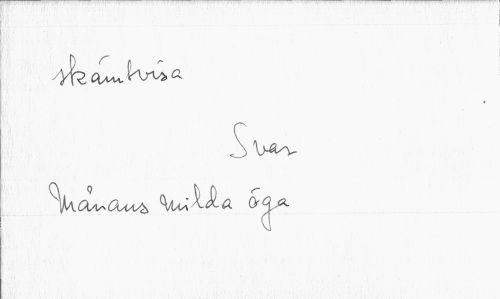 skämtvisa
Svar
Månans milda öga